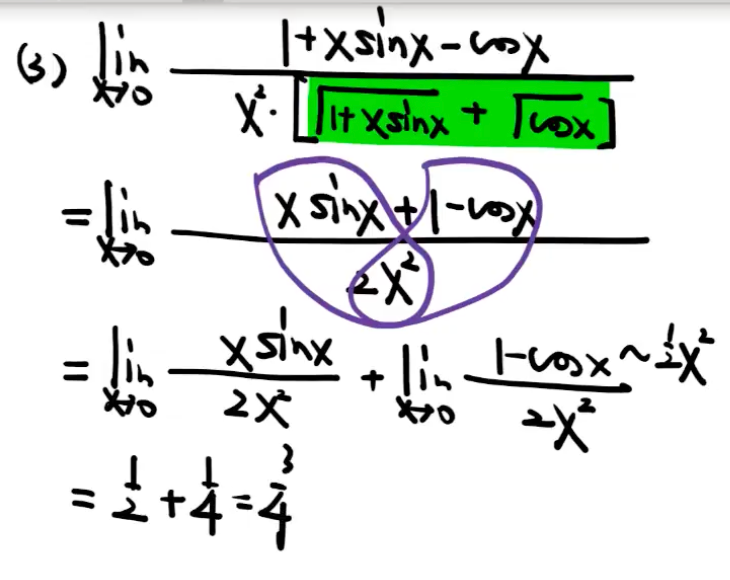 (3) lim x→0 (1+xsinx-cosx) / (x²·[√(1+xsinx) + √(cosx)])
= lim x→0 (xsinx+1-cosx) / (2x²)
= lim x→0 (xsinx) / (2x²) + lim x→0 (1-cosx ~ ½x²) / (2x²)
= 1/2 + 1/4 = 3/4